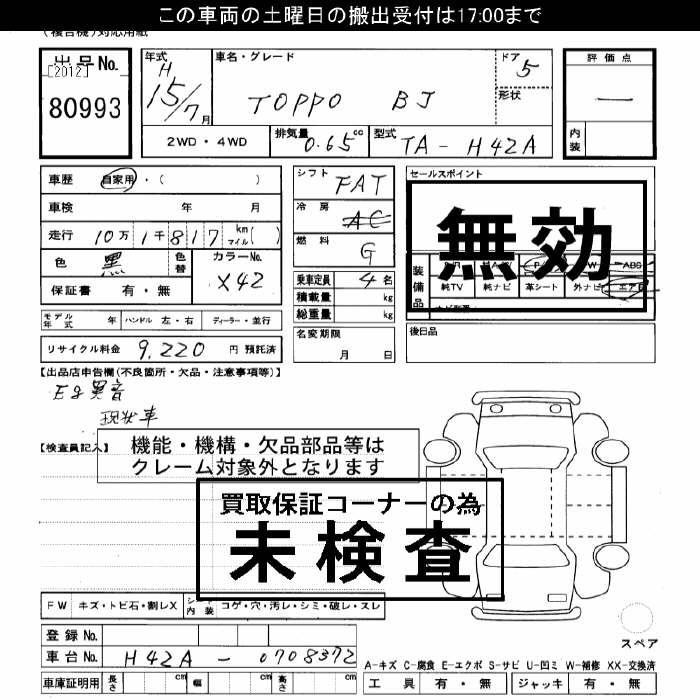 この車両の土曜日の搬出受付は17:00まで
(複合機)対応用紙
出品No.
[2012]
80993
年式
H
15/7
月
車名・グレード
TOPPO BJ
ドア
5
形状
評価点
—
内装
2WD・4WD
排気量
0.65
cc
型式
TA-H42A
車歴
自家用・( )
車検
年 月
走行
10万1千817
km
マイル( )
色
黒
色替
カラーNo.
X42
保証書
有・無
シフト
FAT
冷房
AC
燃料
G
乗車定員
4名
積載量
kg
総重量
kg
セールスポイント
無効
装備品
ABS
純TV
純ナビ
革シート
外ナビ
エアB
モデル年式
年
ハンドル
左・右
ディーラー・並行
名変期限
月 日
後日品
リサイクル料金
9,220
円 預託済
【出品店申告欄(不良箇所・欠品・注意事項等)】
Eg異音
現状車
【検査員記入】
機能・機構・欠品部品等は
クレーム対象外となります
買取保証コーナーの為
未検査
FW
キズ・トビ石・割レX
シート内装
コゲ・穴・汚レ・シミ・破レ・スレ
スペア
登録No.
車台No.
H42A-0708372
車庫証明用
長さ
cm
幅
cm
高さ
cm
A-キズ C-腐食 E-エクボ S-サビ U-凹ミ W-補修 XX-交換済
工具
有・無
ジャッキ
有・無